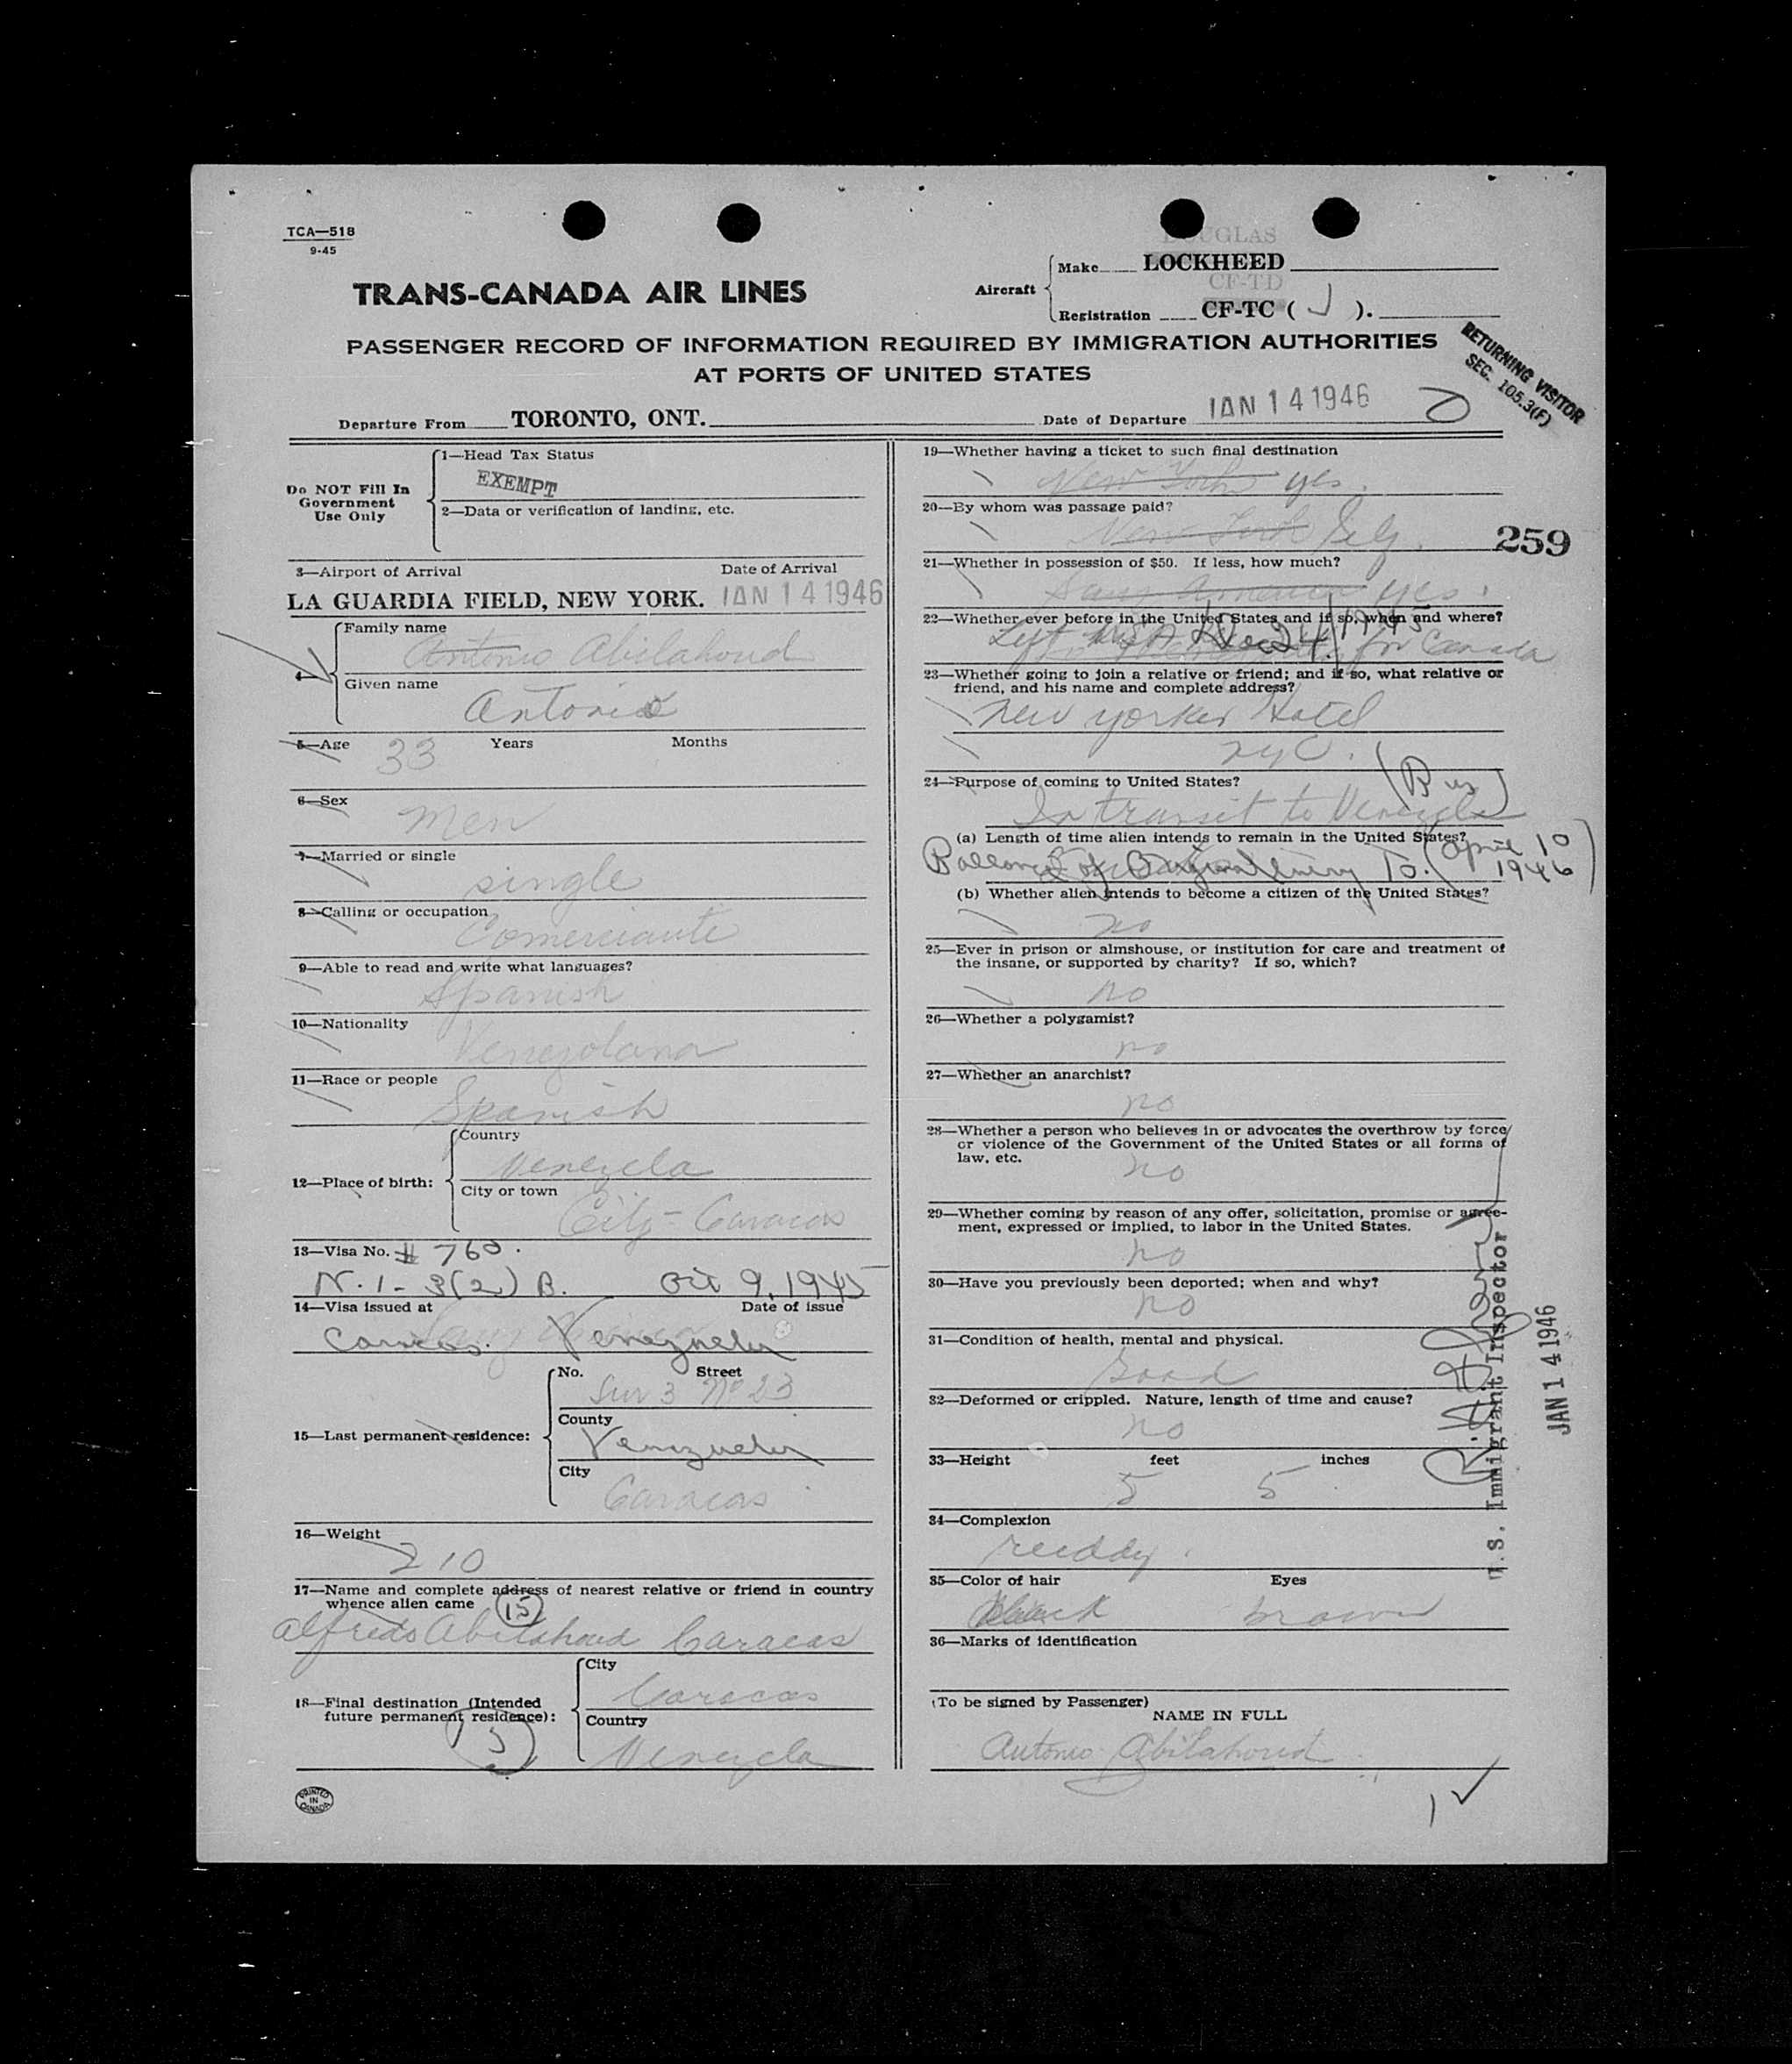 TCA—518
9-45
DOUGLAS
Make LOCKHEED
CF-TD
Aircraft
Registration CF-TC ( J ).
TRANS-CANADA AIR LINES
PASSENGER RECORD OF INFORMATION REQUIRED BY IMMIGRATION AUTHORITIES
AT PORTS OF UNITED STATES
RETURNING VISITOR
SEC. 105.3(F)
Departure From TORONTO, ONT. Date of Departure JAN 14 1946
Do NOT Fill In
Government
Use Only
1—Head Tax Status
EXEMPT
2—Data or verification of landing, etc.
3—Airport of Arrival Date of Arrival
LA GUARDIA FIELD, NEW YORK. JAN 14 1946
4—
Family name
Antonio Abilahoud
Given name
Antonio
5—Age 33 Years Months
6—Sex
Men
7—Married or single
single
8—Calling or occupation
Comerciante
9—Able to read and write what languages?
Spanish
10—Nationality
Venezolana
11—Race or people
Spanish
12—Place of birth:
Country
Venezela
City or town
City - Caracas
13—Visa No. # 760.
N.1 - 3(2) B. Oct 9, 1945
14—Visa issued at Date of issue
Caracas. Venezuela
15—Last permanent residence:
No. Street
Sur 3 No 23
County
Venezuela
City
Caracas
16—Weight
210
17—Name and complete address of nearest relative or friend in country
whence alien came (15)
Alfredo Abilahoud Caracas
18—Final destination (Intended
future permanent residence):
City
Caracas
Country
Venezela
PRINTED
IN
CANADA
19—Whether having a ticket to such final destination
New York yes.
20—By whom was passage paid?
New York Self.
259
21—Whether in possession of $50. If less, how much?
yes.
22—Whether ever before in the United States and if so, when and where?
Left USA Dec 24/1945 for Canada
23—Whether going to join a relative or friend; and if so, what relative or
friend, and his name and complete address?
New Yorker Hotel
NYC.
24—Purpose of coming to United States? (Bus)
In transit to Venezela
(a) Length of time alien intends to remain in the United States?
Ballance of Original Entry To. (April 10
1946)
(b) Whether alien intends to become a citizen of the United States?
no
25—Ever in prison or almshouse, or institution for care and treatment of
the insane, or supported by charity? If so, which?
no
26—Whether a polygamist?
no
27—Whether an anarchist?
no
28—Whether a person who believes in or advocates the overthrow by force
or violence of the Government of the United States or all forms of
law, etc.
no
29—Whether coming by reason of any offer, solicitation, promise or agree-
ment, expressed or implied, to labor in the United States.
no
30—Have you previously been deported; when and why?
no
31—Condition of health, mental and physical.
Good
32—Deformed or crippled. Nature, length of time and cause?
no
33—Height feet inches
5 5
34—Complexion
reeddy.
35—Color of hair Eyes
black brown
36—Marks of identification
(To be signed by Passenger)
NAME IN FULL
Antonio Abilahoud
U.S. Immigrant Inspector
JAN 14 1946